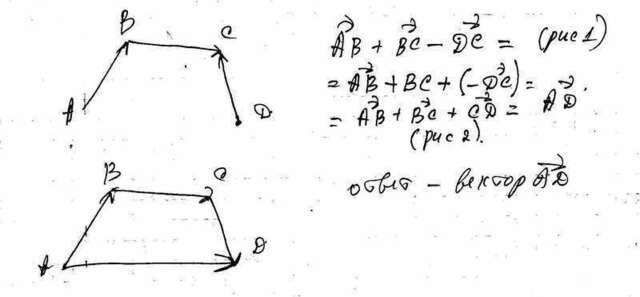 B
C
A
D
AB + BC − DC = (рис 1)
= AB + BC + (−DC) =
= AB + BC + CD = AD.
(рис 2).
B
C
A
D
ответ – вектор AD